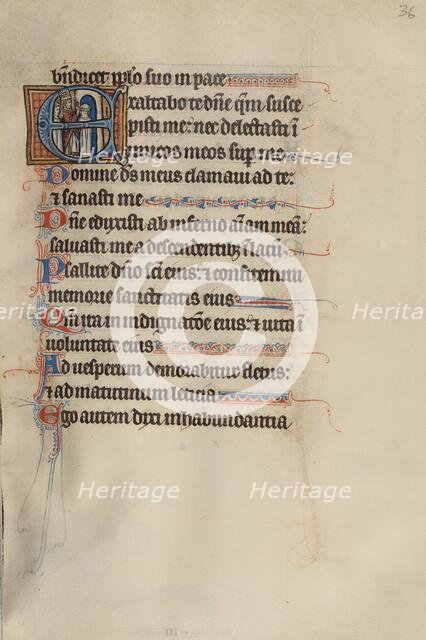 36
bn̄dicet pplo suo in pace
Exaltabo te dn̄e qm̄ susce
pisti me: nec delectasti ī
imicos meos sup̱ me
Domine ds̄ meus clamaui ad te:
⁊ sanasti me
Dn̄e eduxisti ab inferno aīam meā:
saluasti me a descendentibꝫ ī lacū
Psallite dn̄o sc̄i eius: ⁊ confitemini
memorie sanctitatis eius
Qm̄ ira in indignatōe eius: ⁊ uita ī
uoluntate eius
Ad uesperum demorabitur fletus:
⁊ ad matutinum leticia
Ego autem dixi in habundantia
Heritage Heritage
Heritage Heritage Heritage
Heritage Heritage